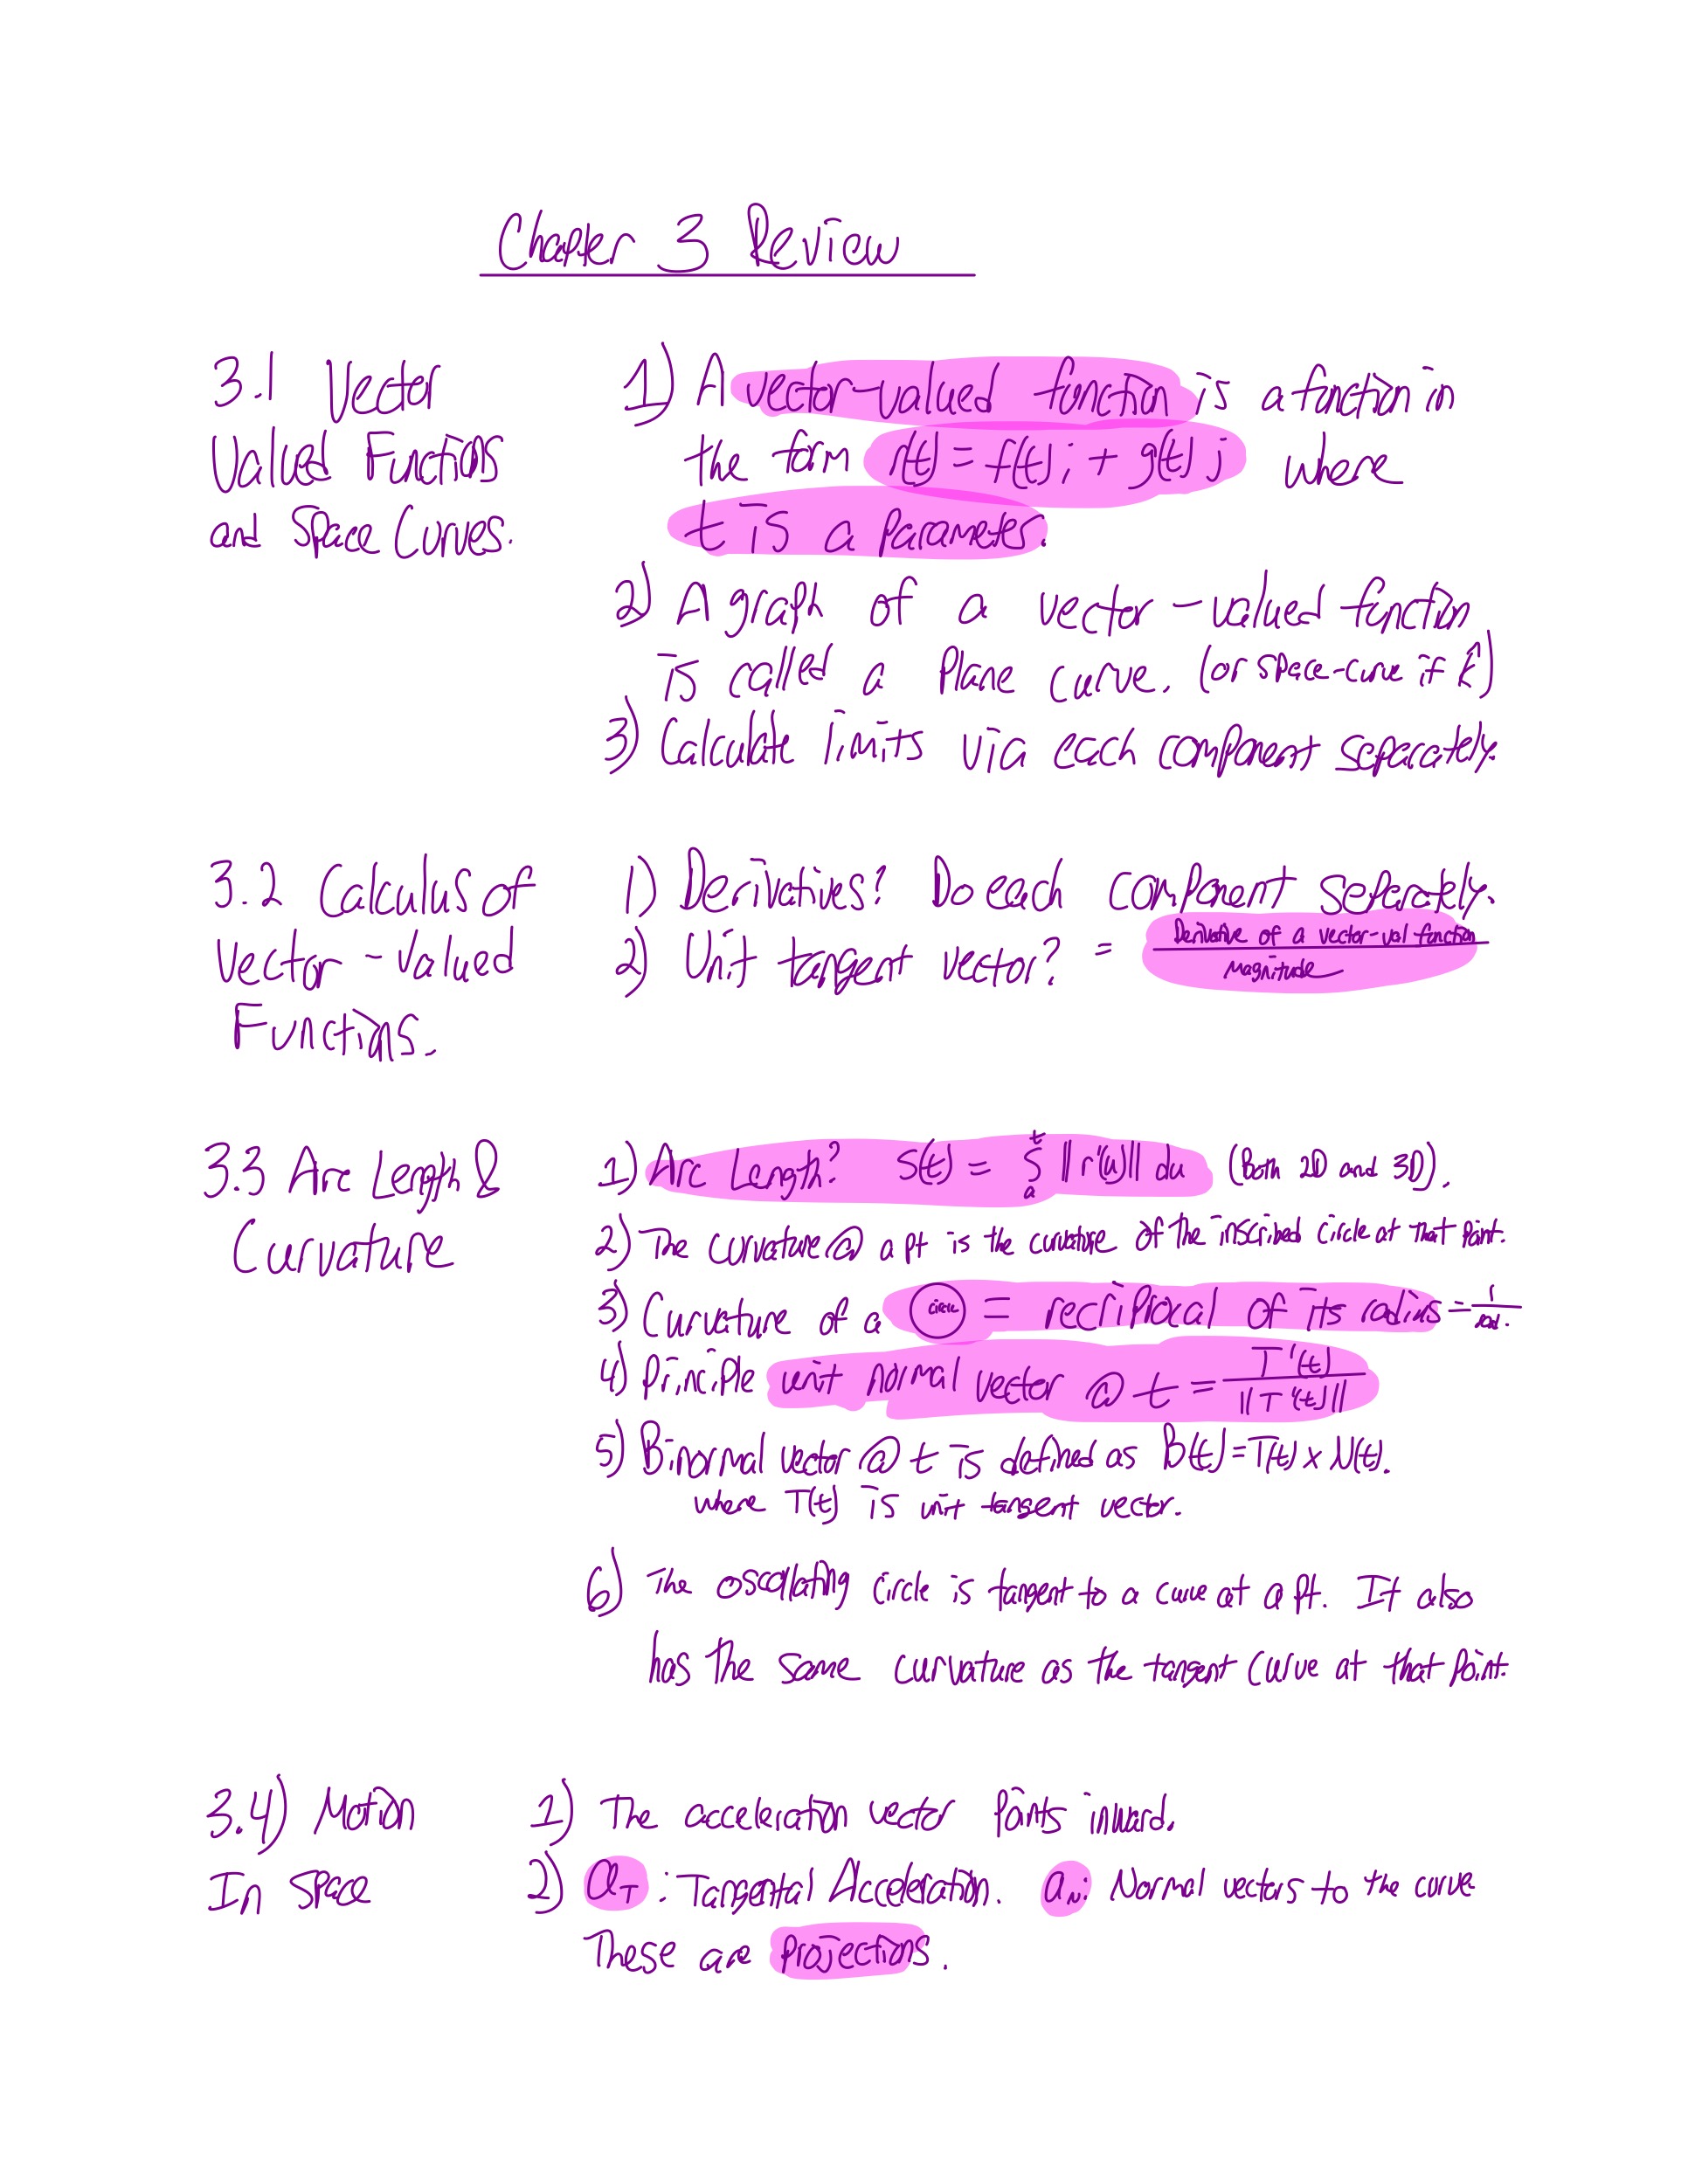 Chapter 3 Review
3.1 Vector
Valued Functions
and Space Curves.
1) A vector-valued function is a function in
the form r(t) = f(t)i + g(t)j where
t is a parameter.
2) A graph of a vector-valued function
is called a Plane curve. (or space-curve if k̂)
3) Calculate limits via each component separately.
3.2 Calculus of
Vector-Valued
Functions.
1) Derivatives? Do each component separately.
2) Unit tangent vector? = Derivative of a vector-val function / Magnitude
3.3 Arc Length &
Curvature
1) Arc Length? S(t) = ∫ₐᵗ ||r'(u)|| du (Both 2D and 3D).
2) The curvature @ a pt is the curvature of the inscribed circle at that point.
3) Curvature of a circle = recriproxal of its radius = 1/rad.
4) Principle unit normal vector @ t = T'(t) / ||T'(t)||
5) Binormal vector @ t is defined as B(t) = T(t) x N(t).
where T(t) is unit tangent vector.
6) The circle is tangent to a curve at a pt. It also
has the same curvature as the tangent curve at that Point.
3.4) Motion
In Space
1) The acceleration vector points inward.
2) a_T : Tangental Acceleration. a_N: Normal vectors to the curve
These are projections.